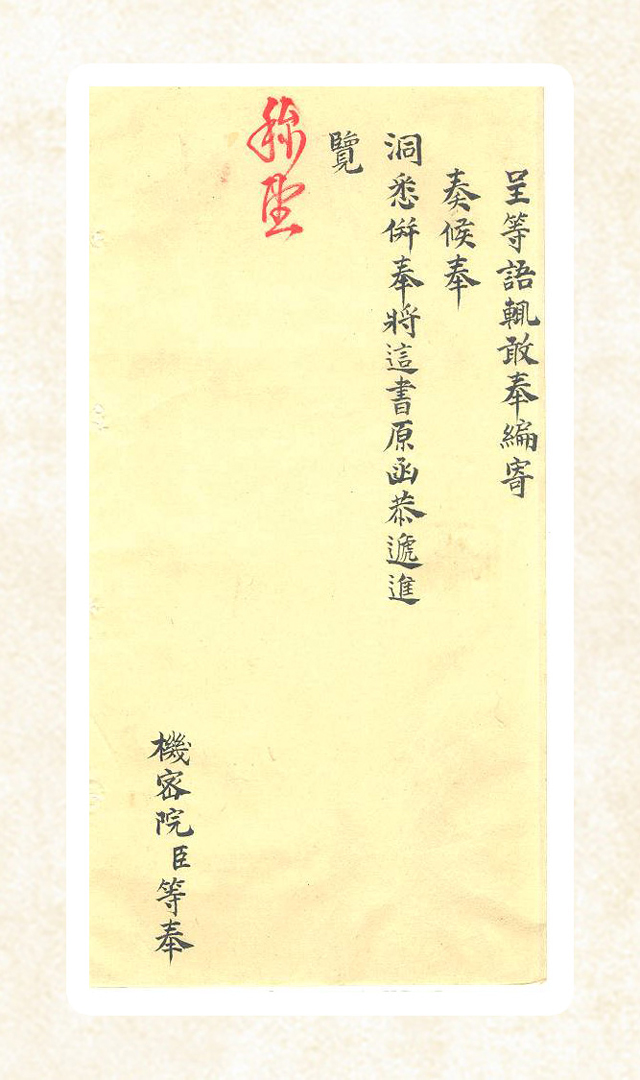 呈等語輒敢奉編寄
奏候奉
洞悉併奉將這書原函恭遞進
覽
機密院臣等奉